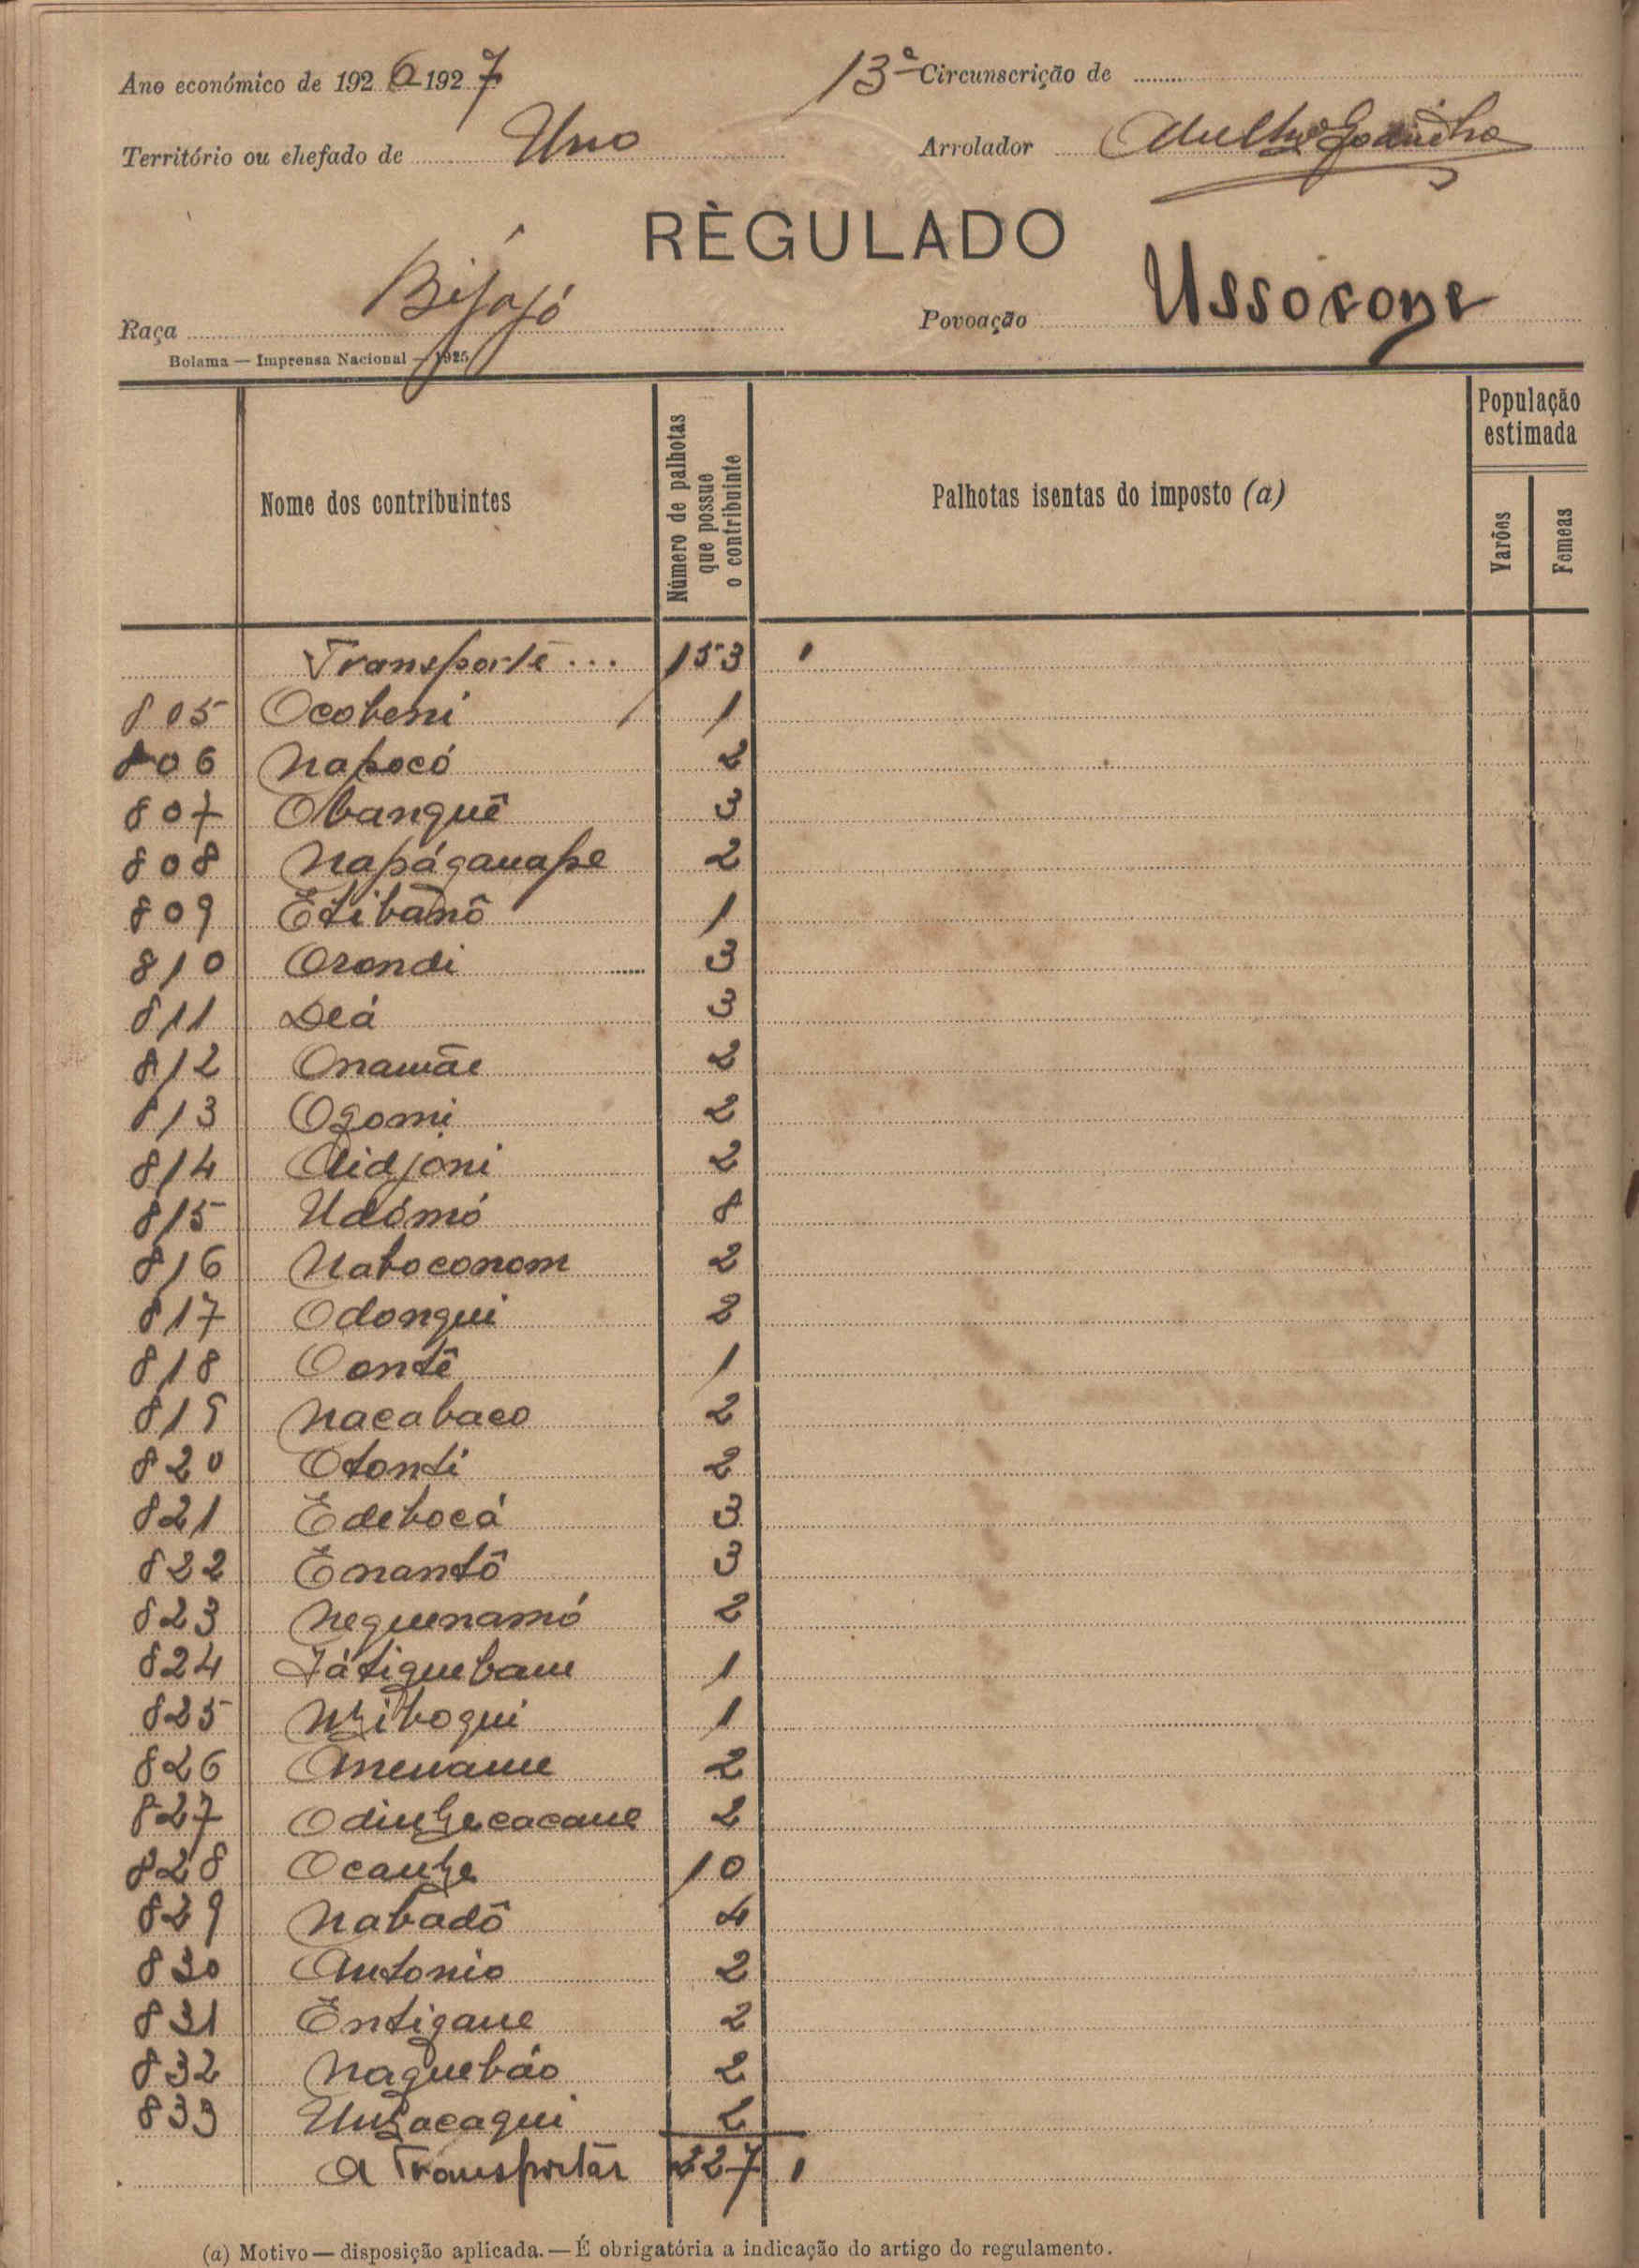 Ano económico de 1926-1927 13ª Circunscrição de
Território ou chefado de Uno Arrolador Godinho
RÈGULADO
Raça Bijajó Povoação Ussocone
Bolama — Imprensa Nacional — 1925
Nome dos contribuintes
Número de palhotas que possue o contribuinte
Palhotas isentas do imposto (a)
População estimada
Varões
Femeas
Transporte ... 153 1
805 Ocobeni 1
806 Napocó 2
807 Obanguê 3
808 Napáganape 2
809 Etibanô 1
810 Orondi 3
811 Deá 3
812 Onamãe 2
813 Ogomi 2
814 Aidjoni 2
815 Udómó 8
816 Naboconom 2
817 Odongui 2
818 Contê 1
819 Nacabaco 2
820 Otonti 2
821 Edebocá 3
822 Enantô 3
823 Neguenamó 2
824 Játiguebane 1
825 Nziboqui 1
826 Anename 2
827 Odinhecacane 2
828 Ocanhe 10
829 Nabadô 4
830 Antonio 2
831 Entigane 2
832 Naguebáo 2
833 Unhacagui 2
A Transportar 227 1
(a) Motivo — disposição aplicada. — É obrigatória a indicação do artigo do regulamento.